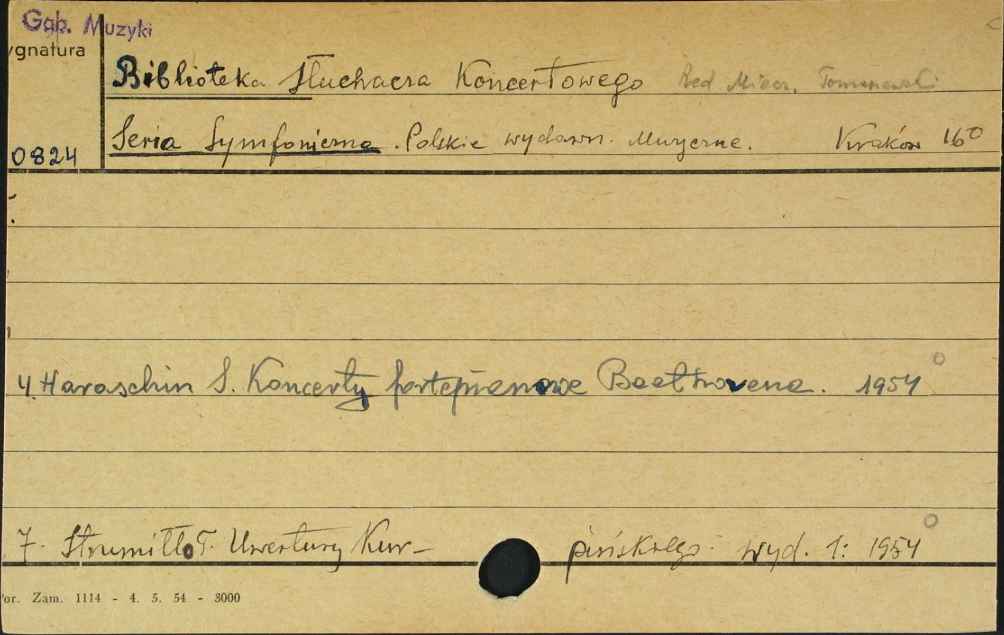 Gab. Muzyki
ygnatura
Biblioteka Słuchacza Koncertowego Red Miecz. Tomaszewski
Seria Symfoniczna. Polskie wydawn. Muzyczne. Kraków 16°
0824
4. Haraschin S. Koncerty fortepianowe Beethovena. 1954
7. Strumiłło T. Uwertury Kur-pińskiego. wyd. 1: 1954
or. Zam. 1114 - 4. 5. 54 - 3000